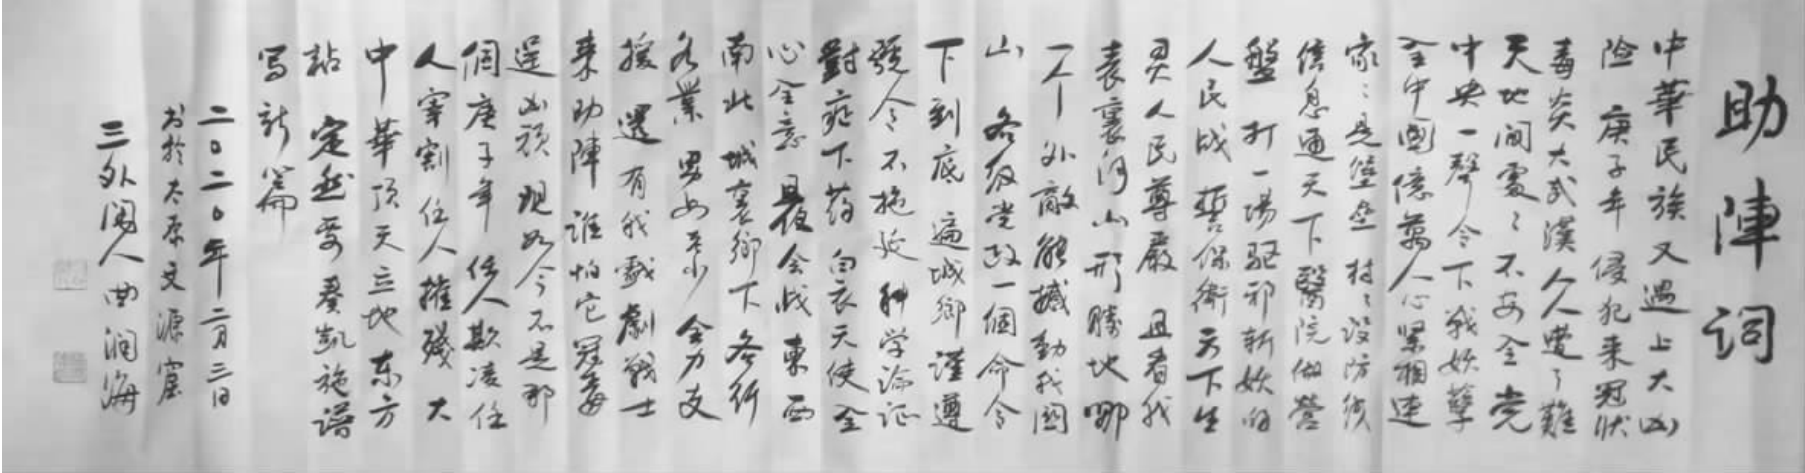 助陣詞
中華民族又遇上大凶
险 庚子年 侵犯来冠状
毒炎大武漢 人人遭了難
天地间處々不安全 党
中央一聲令下戰妖孽
全中國億萬人心緊相連
家々是堡垒 村々設防线
信息通天下醫院做營
盤 打一場驱邪斬妖的
人民战 誓保衛天下生
灵人民尊嚴 且看我
表裏河山形勝地 哪
一个外敵能撼動我國
山 各级党政一個命令
下到底 遍城鄉謹遵
號令不拖延 科学论证
對症下药 白衣天使全
心全意 日夜会战 東西
南北 城裏鄉下 各行
各業 男女老少 全力支
援 還有我戲劇戰士
来助陣 谁怕它冠毒
逞凶顽 现如今不是那
個庚子年 任人欺凌任
人宰割任人摧殘 大
中華頂天立地东方
站 定然要奏凱旋譜
写新篇
二〇二〇年二月三日
书於太原文源窟
三外阁人 曲润海